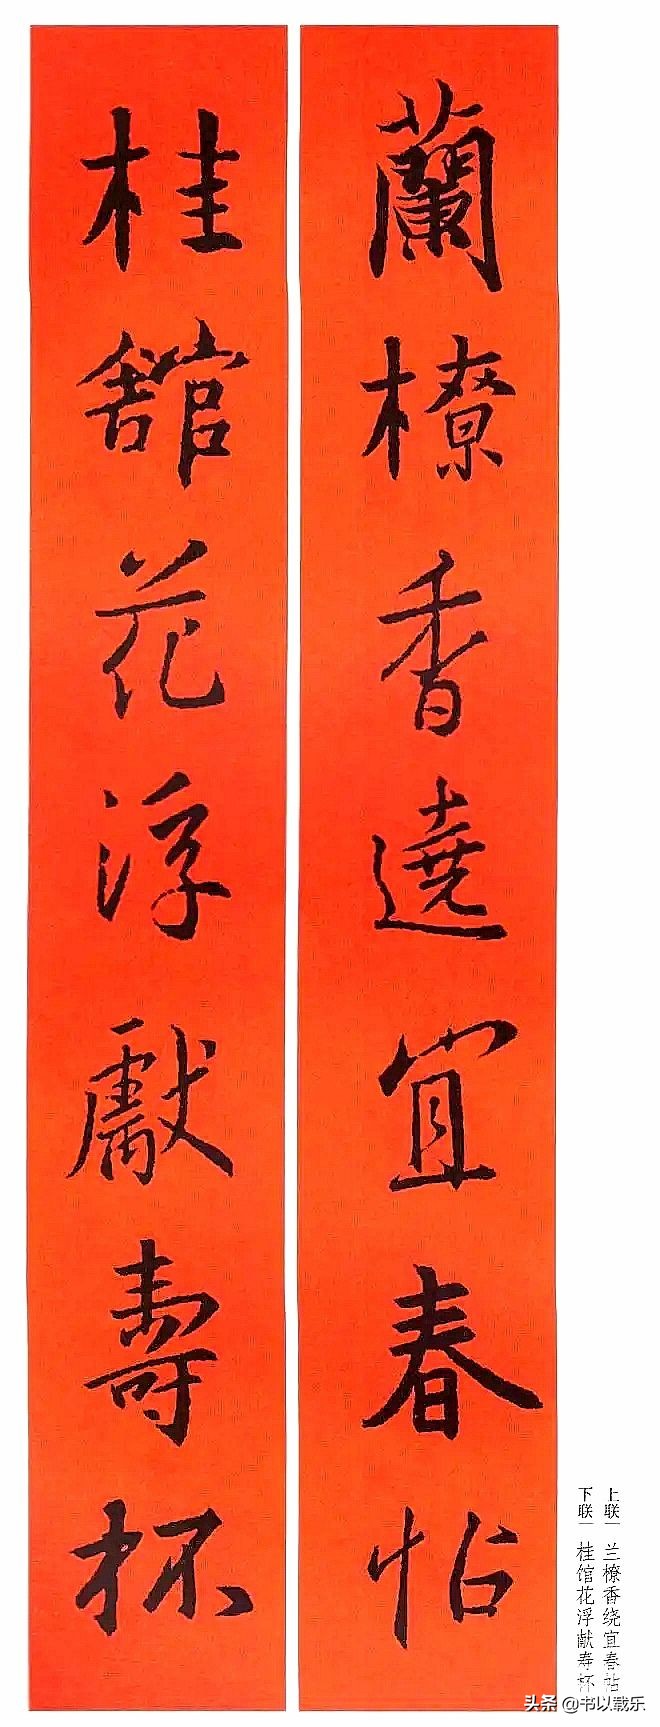 蘭橑香遶宜春帖
桂舘花浮獻壽杯
上联｜兰橑香绕宜春帖
下联｜桂馆花浮献寿杯
头条 @书以载乐